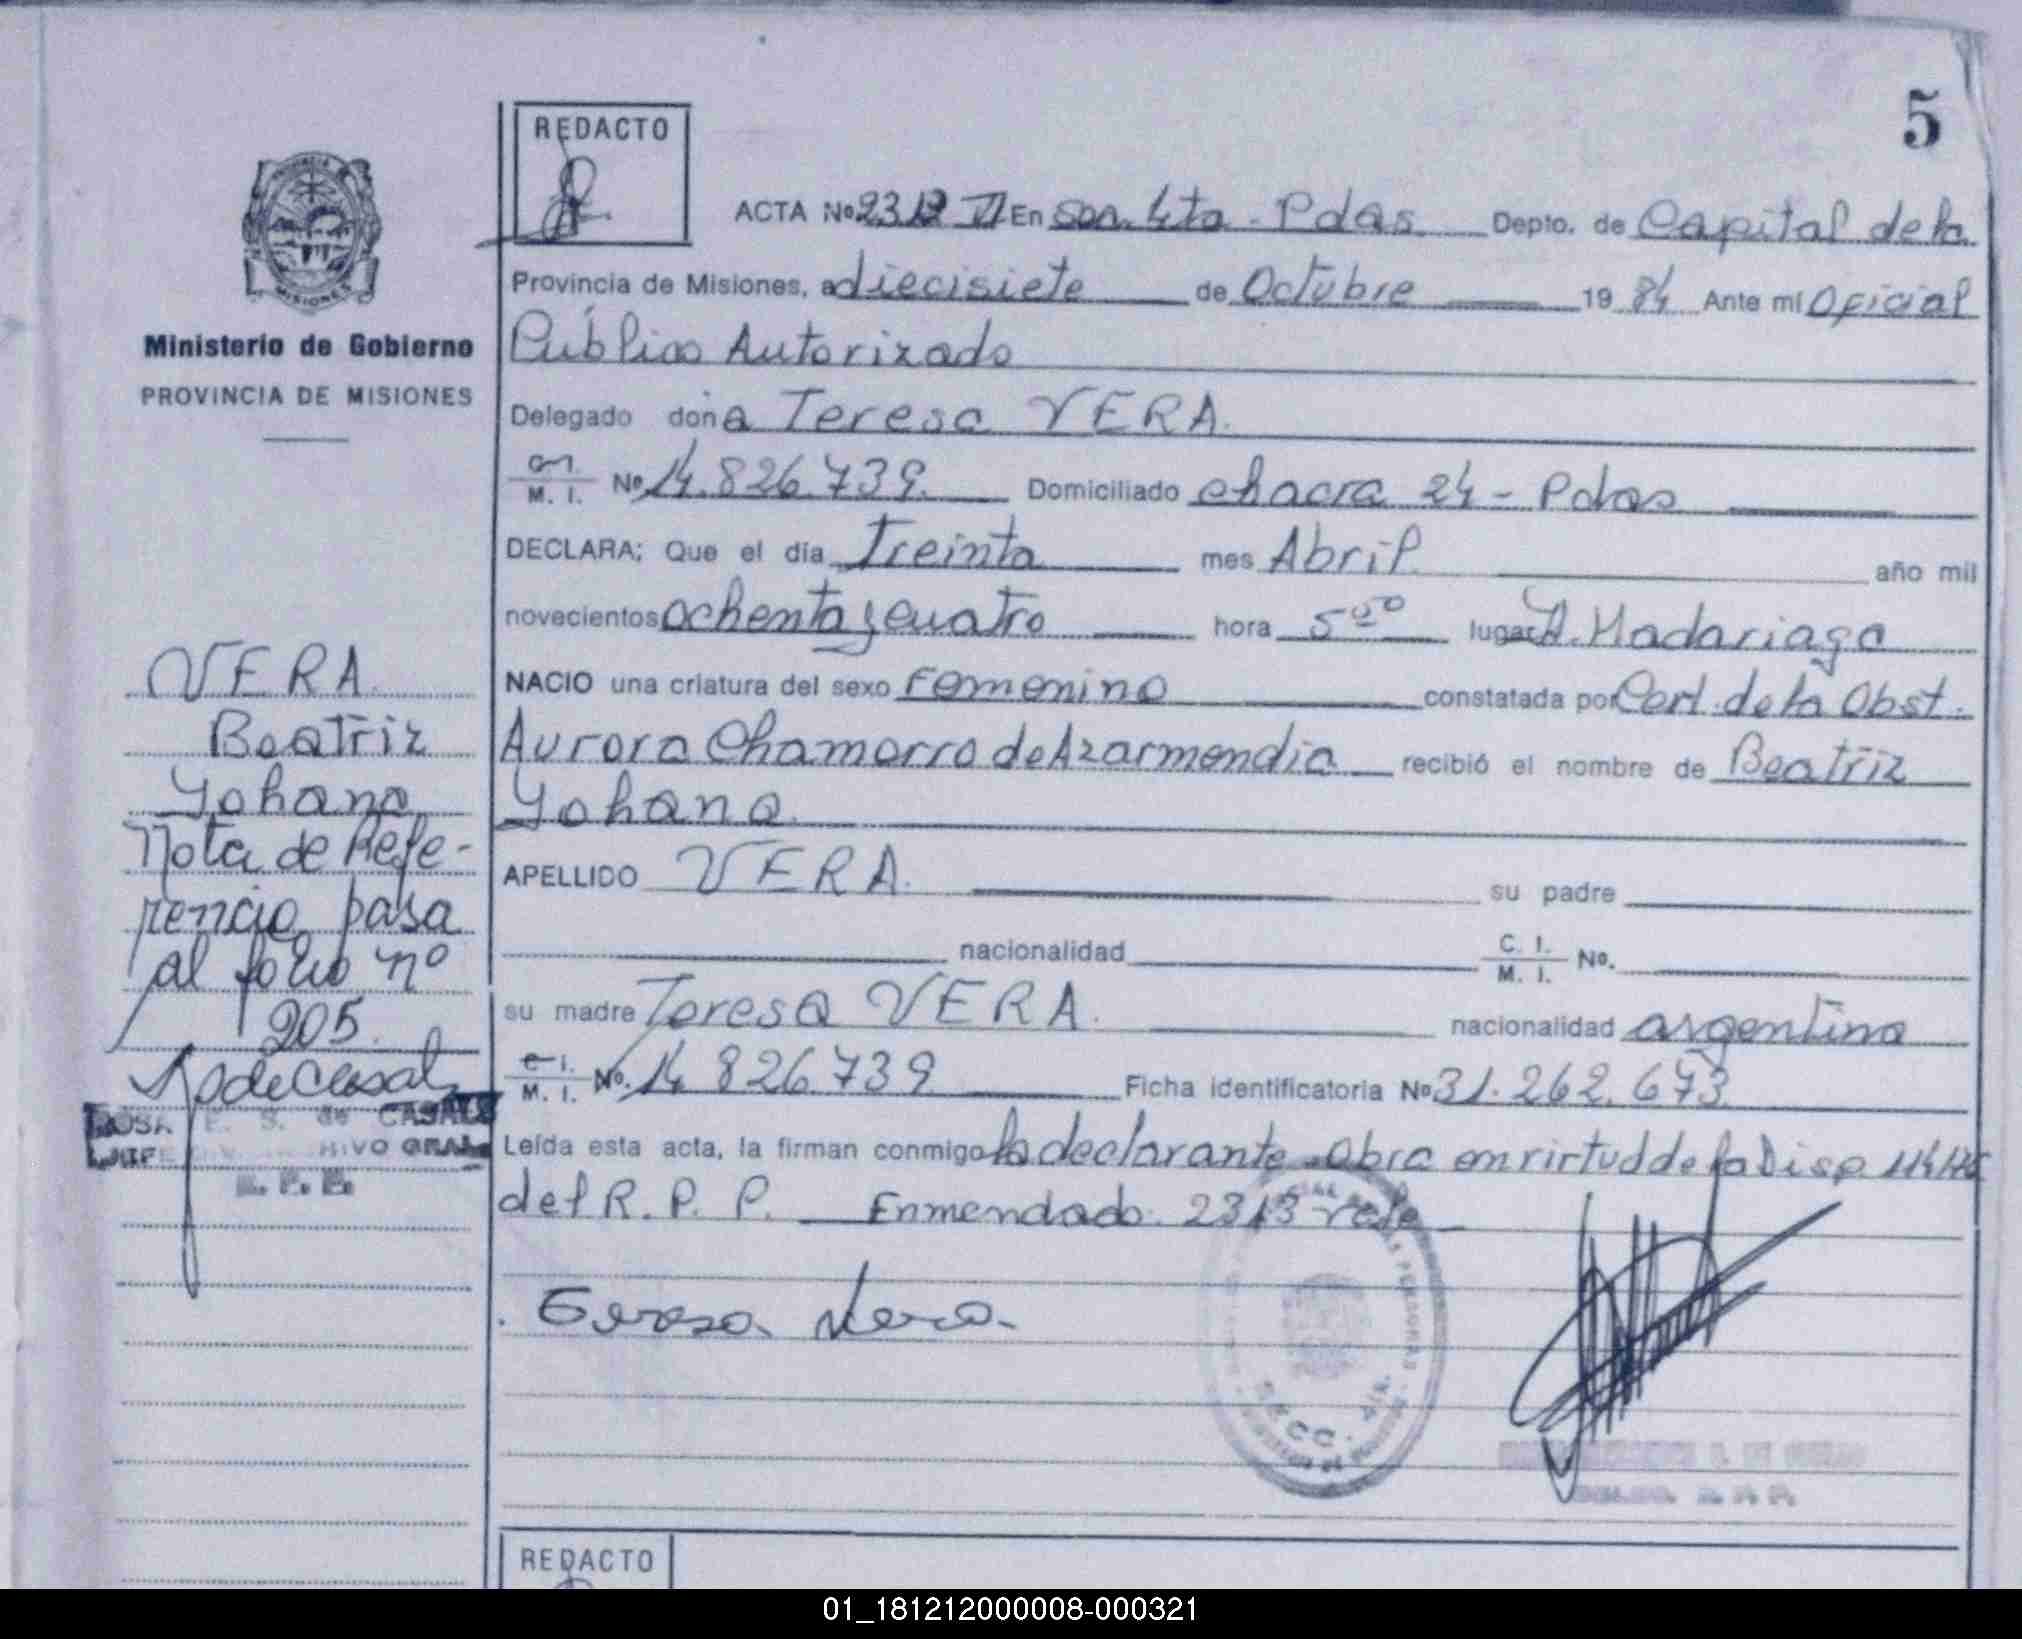 5
REDACTO
ACTA Nº 2313 VI En Sec. 4ta - Pdas. Depto. de Capital de la
Provincia de Misiones, a diecisiete de Octubre 19 84 Ante mí Oficial
Público Autorizado
Delegado doña Teresa VERA.
M. I. Nº 14.826.739. Domiciliado chacra 24 - Pdas
DECLARA; Que el día Treinta mes Abril año mil
novecientos ochenta y cuatro hora 5 00 lugar H. Madariaga
NACIO una criatura del sexo Femenino constatada por Cert. de la Obst.
Aurora Chamorro de Azarmendia recibió el nombre de Beatriz
Yohana
APELLIDO VERA. su padre
nacionalidad C. I. M. I. Nº.
su madre Teresa VERA. nacionalidad argentina
M. I. Nº. 14 826.739 Ficha identificatoria Nº 31.262.673
Leída esta acta, la firman conmigo la declarante. Obra en virtud de la Disp.
del R. P. P. Enmendado: 2313 vale
Teresa Vera
SECC. 4ta.
REDACTO
PROVINCIA
MISIONES
Ministerio de Gobierno
PROVINCIA DE MISIONES
VERA.
Beatriz
Yohana
Nota de Refe-
rencia pasa
al folio nº
205.
ROSA E. S. de CASALS
JEFE DIV. ARCHIVO GRAL
R. P. P.
01_181212000008-000321